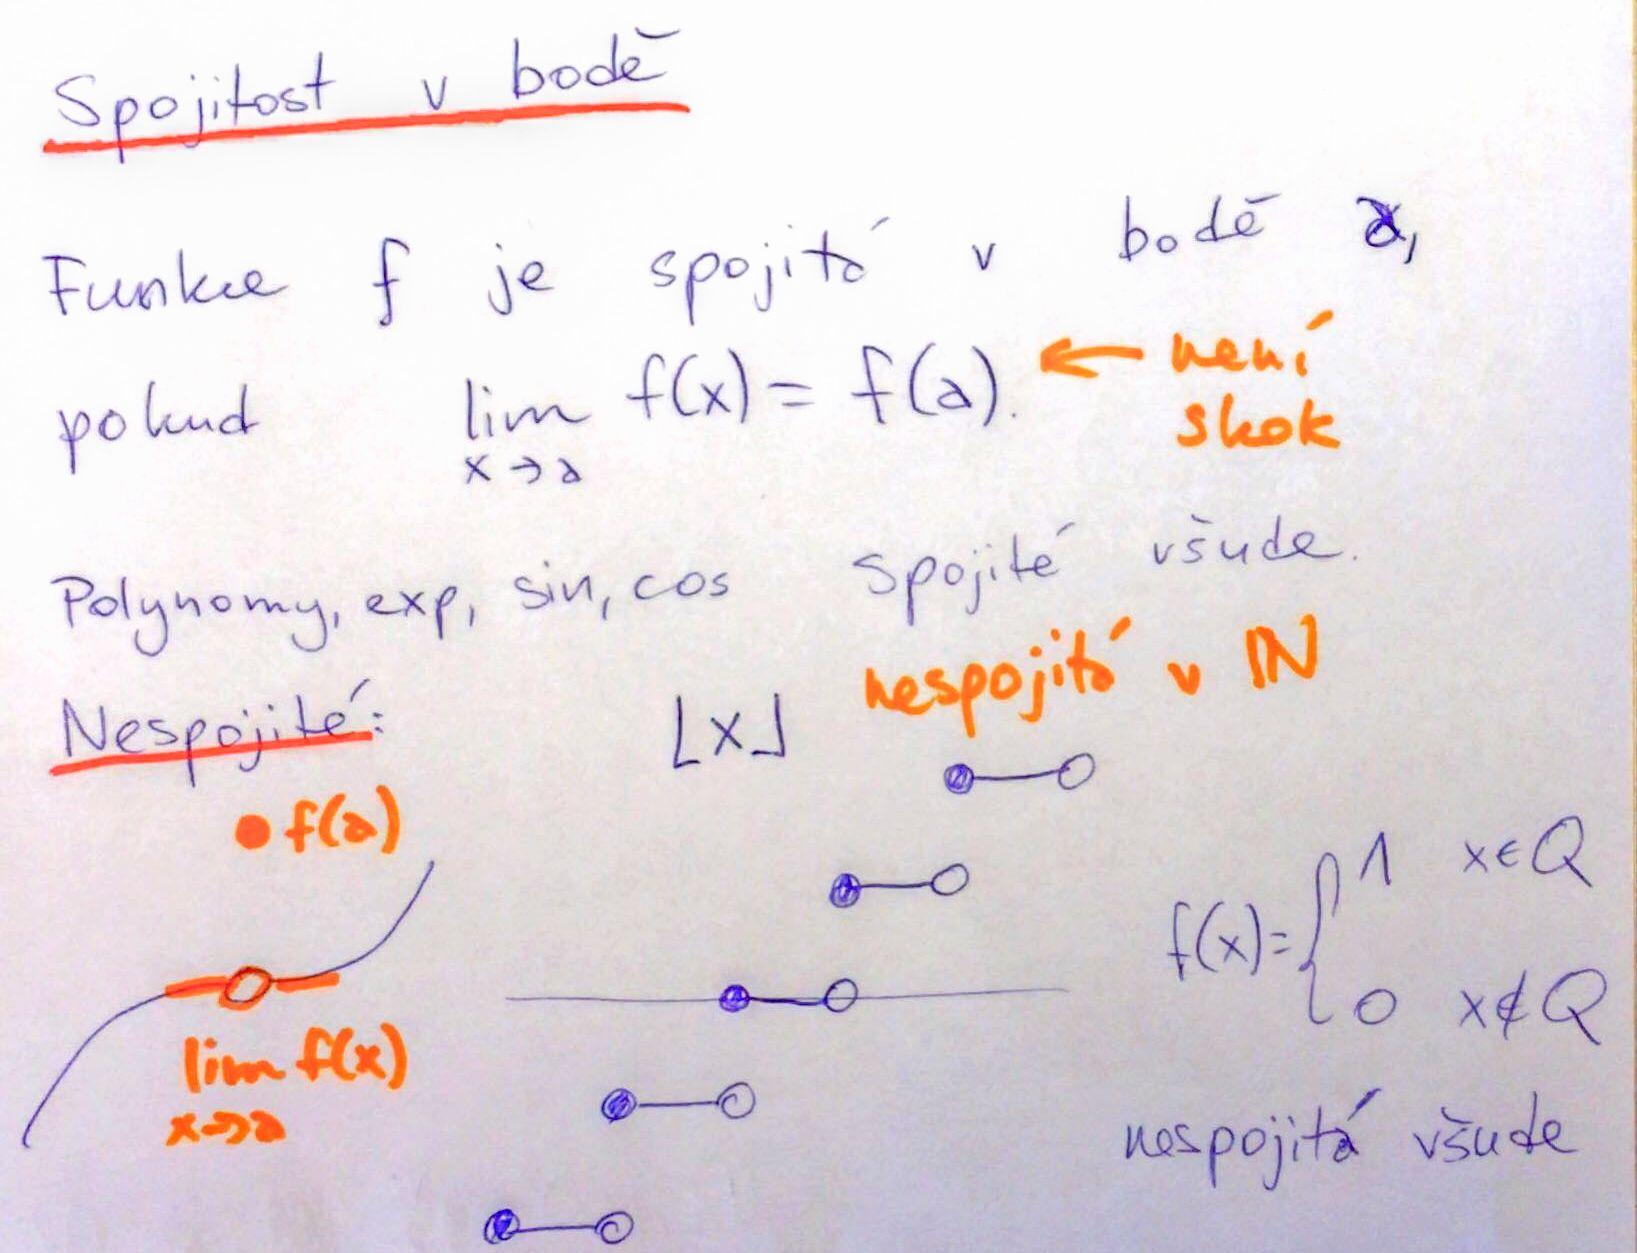 Spojitost v bodě
Funkce f je spojitá v bodě a,
pokud lim f(x) = f(a). ← není
x→a
skok
Polynomy, exp, sin, cos spojité všude.
nespojitá v ℕ
Nespojité: ⌊x⌋
f(a)
f(x) = { 1 x∈Q
0 x∉Q
lim f(x)
x→a
nespojitá všude